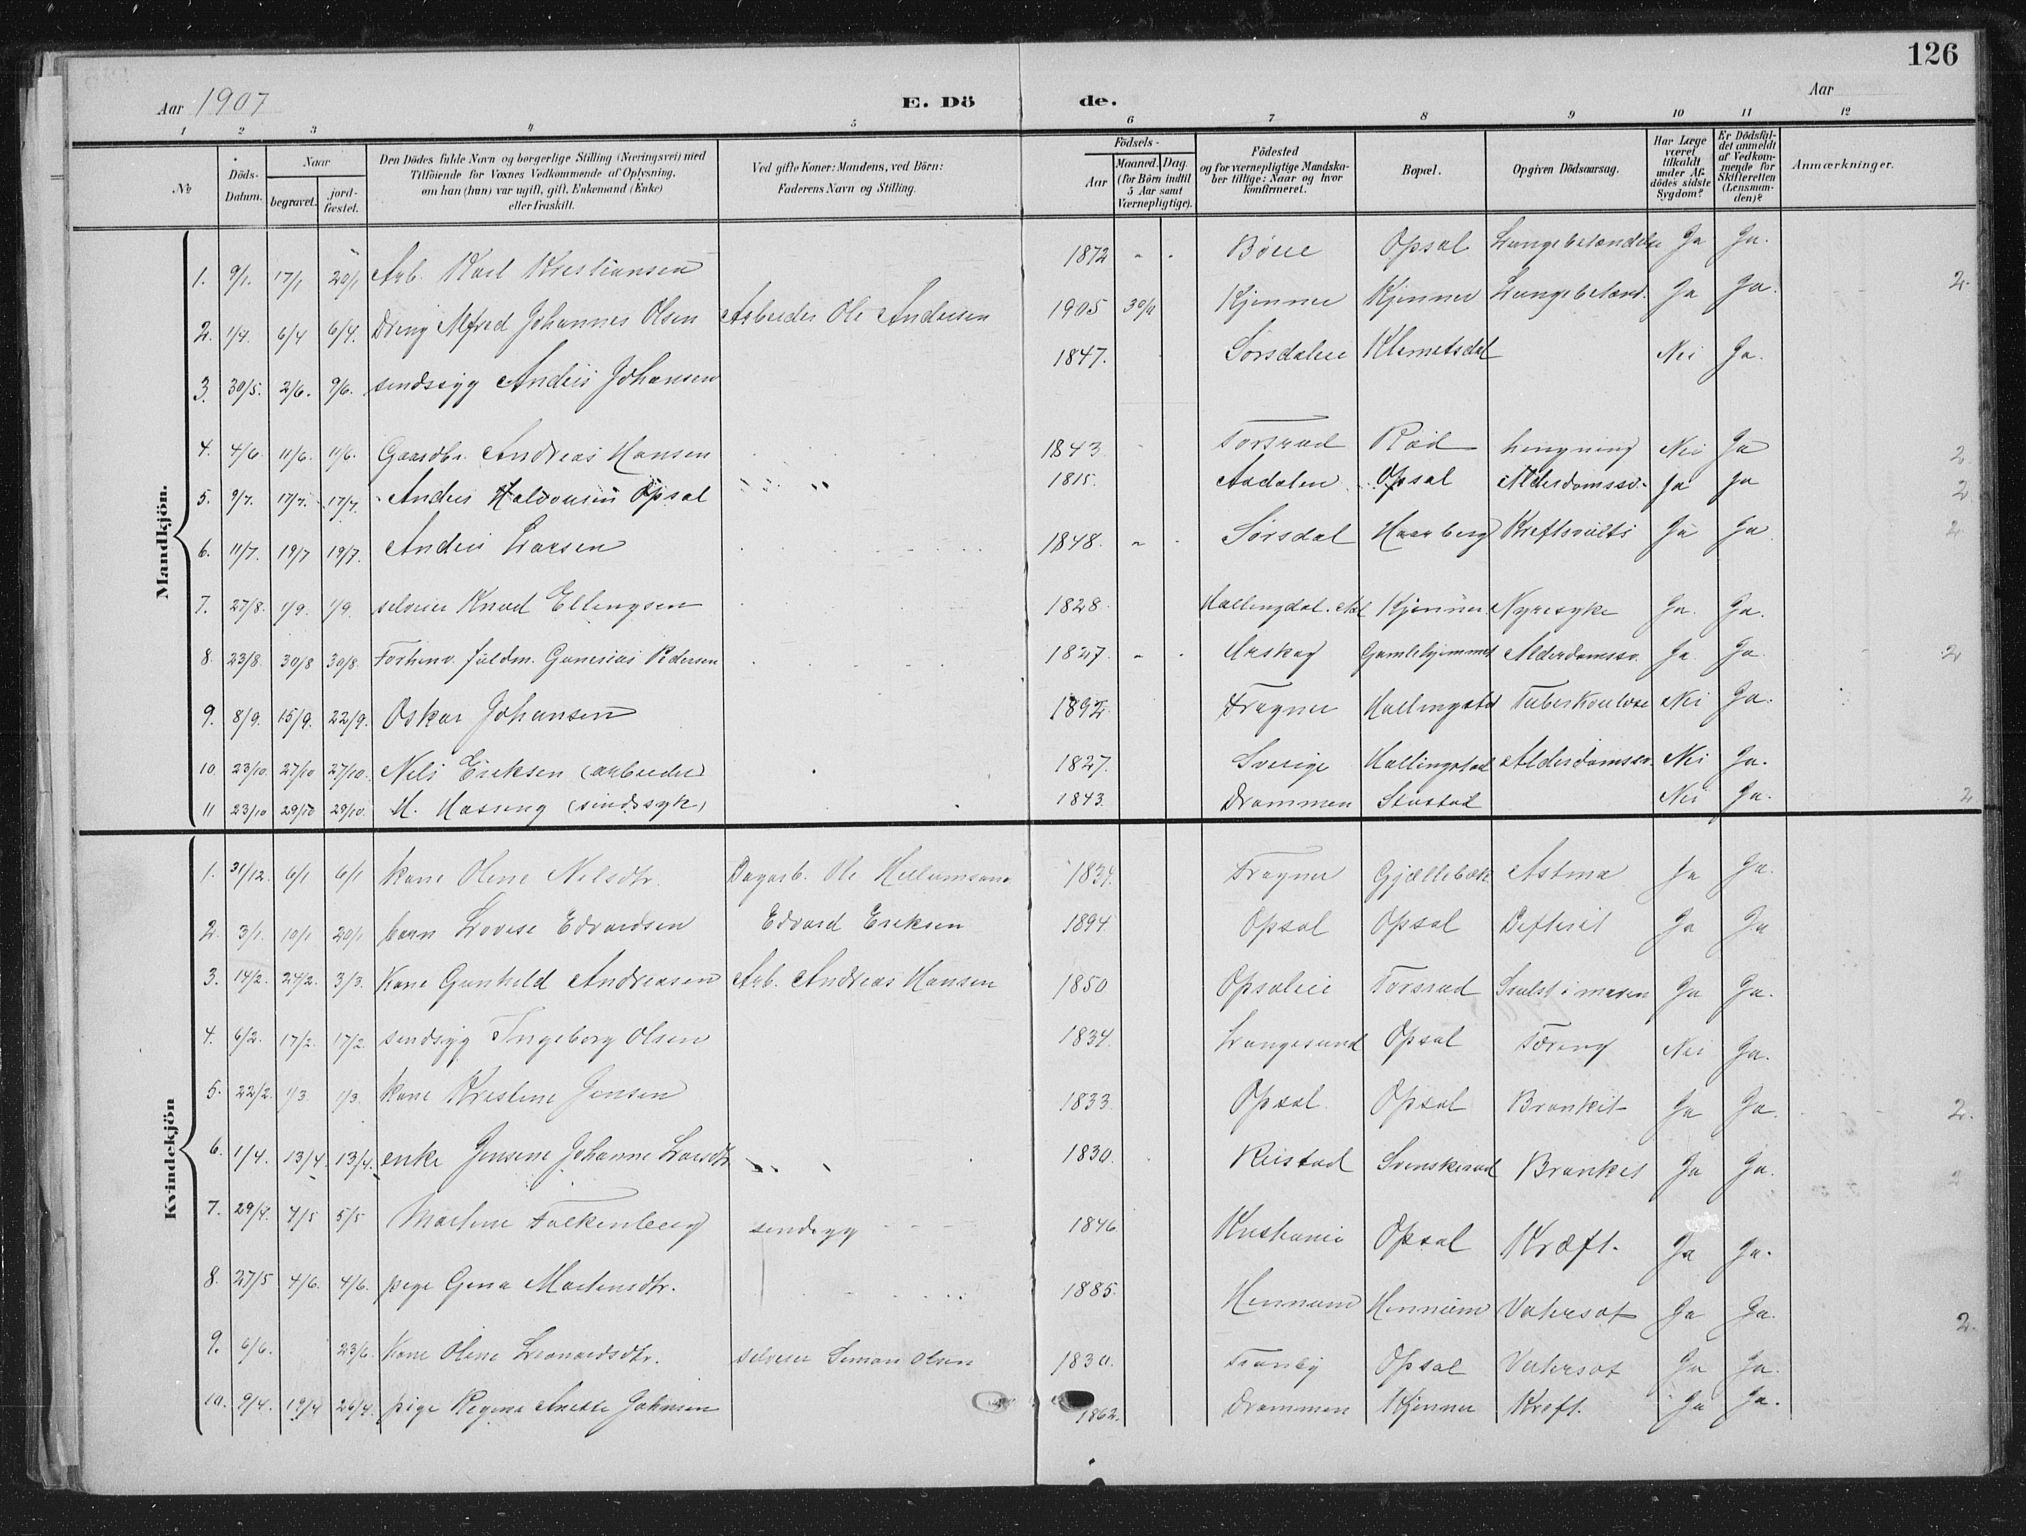 126
Aar 1907 E. Dö de. Aar
1 2 3 4 5 6 7 8 9 10 11 12
No Döds-Datum. Naar begravet. jord-fæstet. Den Dödes fulde Navn og borgerlige Stilling (Næringsvei) med Tilföiende for Voxnes Vedkommende af Oplysning, om han (hun) var ugift, gift, Enkemand (Enke) eller fraskilt. Ved gifte Koner: Mandens, ved Börn: Faderens Navn og Stilling. Födsels- Aar Maaned. Dag. (for Börn indtil 5 Aar samt Værnepligtige). Födested og for værnepligtige Mandskaber tillige: Naar og hvor konfirmeret. Bopæl. Opgiven Dödsaarsag. Har Læge været tilkaldt under Afdödes sidste Sygdom? Er Dödsfaldet anmeldt af Vedkommende for Skifteretten (Lensmanden)? Anmærkninger.
Mandkjön.
1. 9/1. 17/1 20/1 Arb. Karl Kristiansen 1872 Opsal Lungebetændelse Ja Ja. 2.
2. 1/4. 6/4 6/4. Dreng Alfred Johannes Olsen Arbeider Ole Andersen 1905 Kjenner Kjenner Lungebetænd. Ja Ja.
3. 30/5. 2/6. 9/6. sindssyg Anders Johansen 1847. Klemetsdal Nei Ja.
4. 4/6. 11/6. 11/6. Gaardbr. Andreas Hansen 1843 Torsrud Rød hengning Nei Ja 2
5. 9/7. 17/7. 17/7. Anders Halvorsen Opsal 1815. Aadalen Opsal Alderdomssv. Ja Ja 2
6. 11/7. 19/7 19/7. Anders Larsen 1848. Sørsdal Haarberg Kreftsvulst Ja Ja 2
7. 27/8. 1/9. 1/9. selveier Knud Ellingsen 1828. Hallingdal. Aal Kjenner Nyresyke Ja. Ja.
8. 23/8. 30/8 30/8. Forhenv. fuldm. Pedersen 1827. Aaskog Gamlehjemmet Alderdomssv. Ja. Ja. 2
9. 8/9. 15/9. 22/9. Oskar Johansen Frogner Hallingstad Tuberkoulose Nei Ja.
10 23/10. 27/10 27/10. Nils Eriksen (arbeider) 1827. Sverige Hallingstad Alderdomssv. Nei Ja.
11 23/10 29/10 29/10. H. Hasseng (sindssyk) 1843. Drammen Stastad Nei Ja. 2
Kvindekjön
1. 31/12. 6/1 6/1 kone Olene Nilsdtr. Dagarb. Ole 1834. Frogner Gjællebæk Astma Ja Ja.
2. 3/1. 10/1 20/1 barn Lovise Edvardsen Edvard Eriksen 1894. Opsal Opsal Difterit Ja Ja
3. 14/2. 24/2. 3/3. Kone Gunhild Andreasen Arb. Andreas Hansen 1850 Opsaleie Torsrud Svulst i maven Ja Ja.
4. 6/2. 17/2. 17/2. sindsyg Ingeborg Olsen 1834. Langesund Opsal Tæring Nei Ja.
5. 22/2. 1/3. 1/3. kone Kristine Jensen 1833. Opsal. Opsal Bronkit Ja Ja. 2.
6. 1/4. 13/4 13/4. enke Jensine Johanne Larsdtr 1830. Reistad Svenskerud Bronkit Ja Ja. 2
7. 29/4. 4/5 5/5 Martine Falkenberg sindsyg 1846. Kristiania Opsal Kræft. Ja Ja.
8. 27/5 4/6. 4/6. pige Gina Martinsdtr. 1885. Hennum Hennum Vatersot Ja Ja.
9. 6/6. 23/6. Kone Olene Leonardsdtr. selveier Simon Olsen 1830. Tranby Opsal Vatersot Ja Ja. 2.
10. 9/4. 19/4 26/4. pige Regine Anette Johnsen 1862. Drammen Kjenner Kreft. Ja Ja.